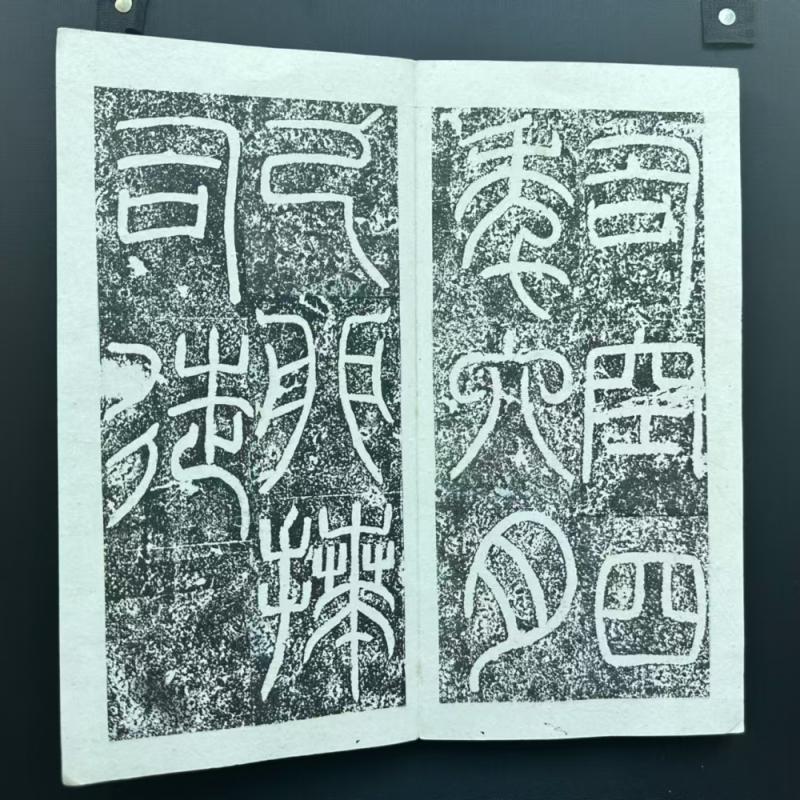 司空四
年六月
己卯拜
司徒